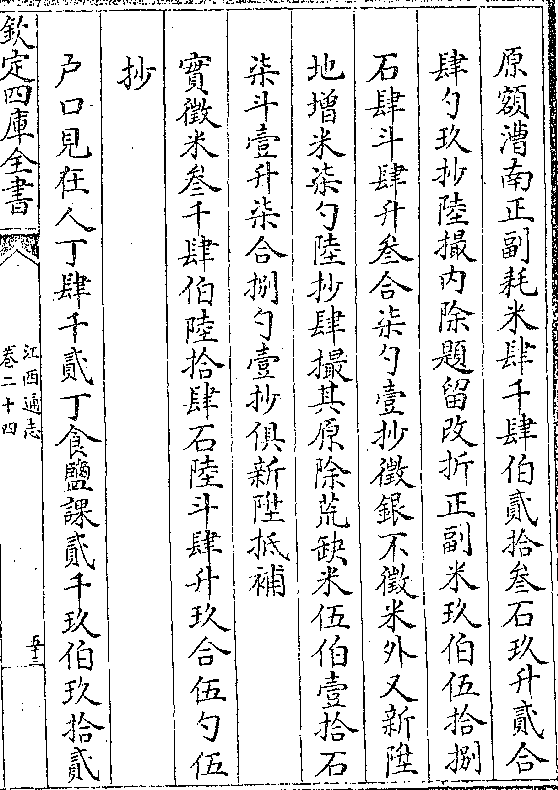 原額漕南正副耗米肆千肆伯貳拾叁石玖升貳合
肆勺玖抄陸撮内除題留改折正副米玖伯伍拾捌
石肆斗肆升叁合柒勺壹抄徵銀不徵米外又新陞
地增米柒勺陸抄肆撮其原除荒缺米伍伯壹拾石
柒斗壹升柒合捌勺壹抄俱新陞抵補
實徵米叁千肆伯陸拾肆石陸斗肆升玖合伍勺伍
抄
户口見在人丁肆千貳丁食鹽課貳千玖伯玖拾貳
欽定四庫全書
江西通志
卷二十四
五十三